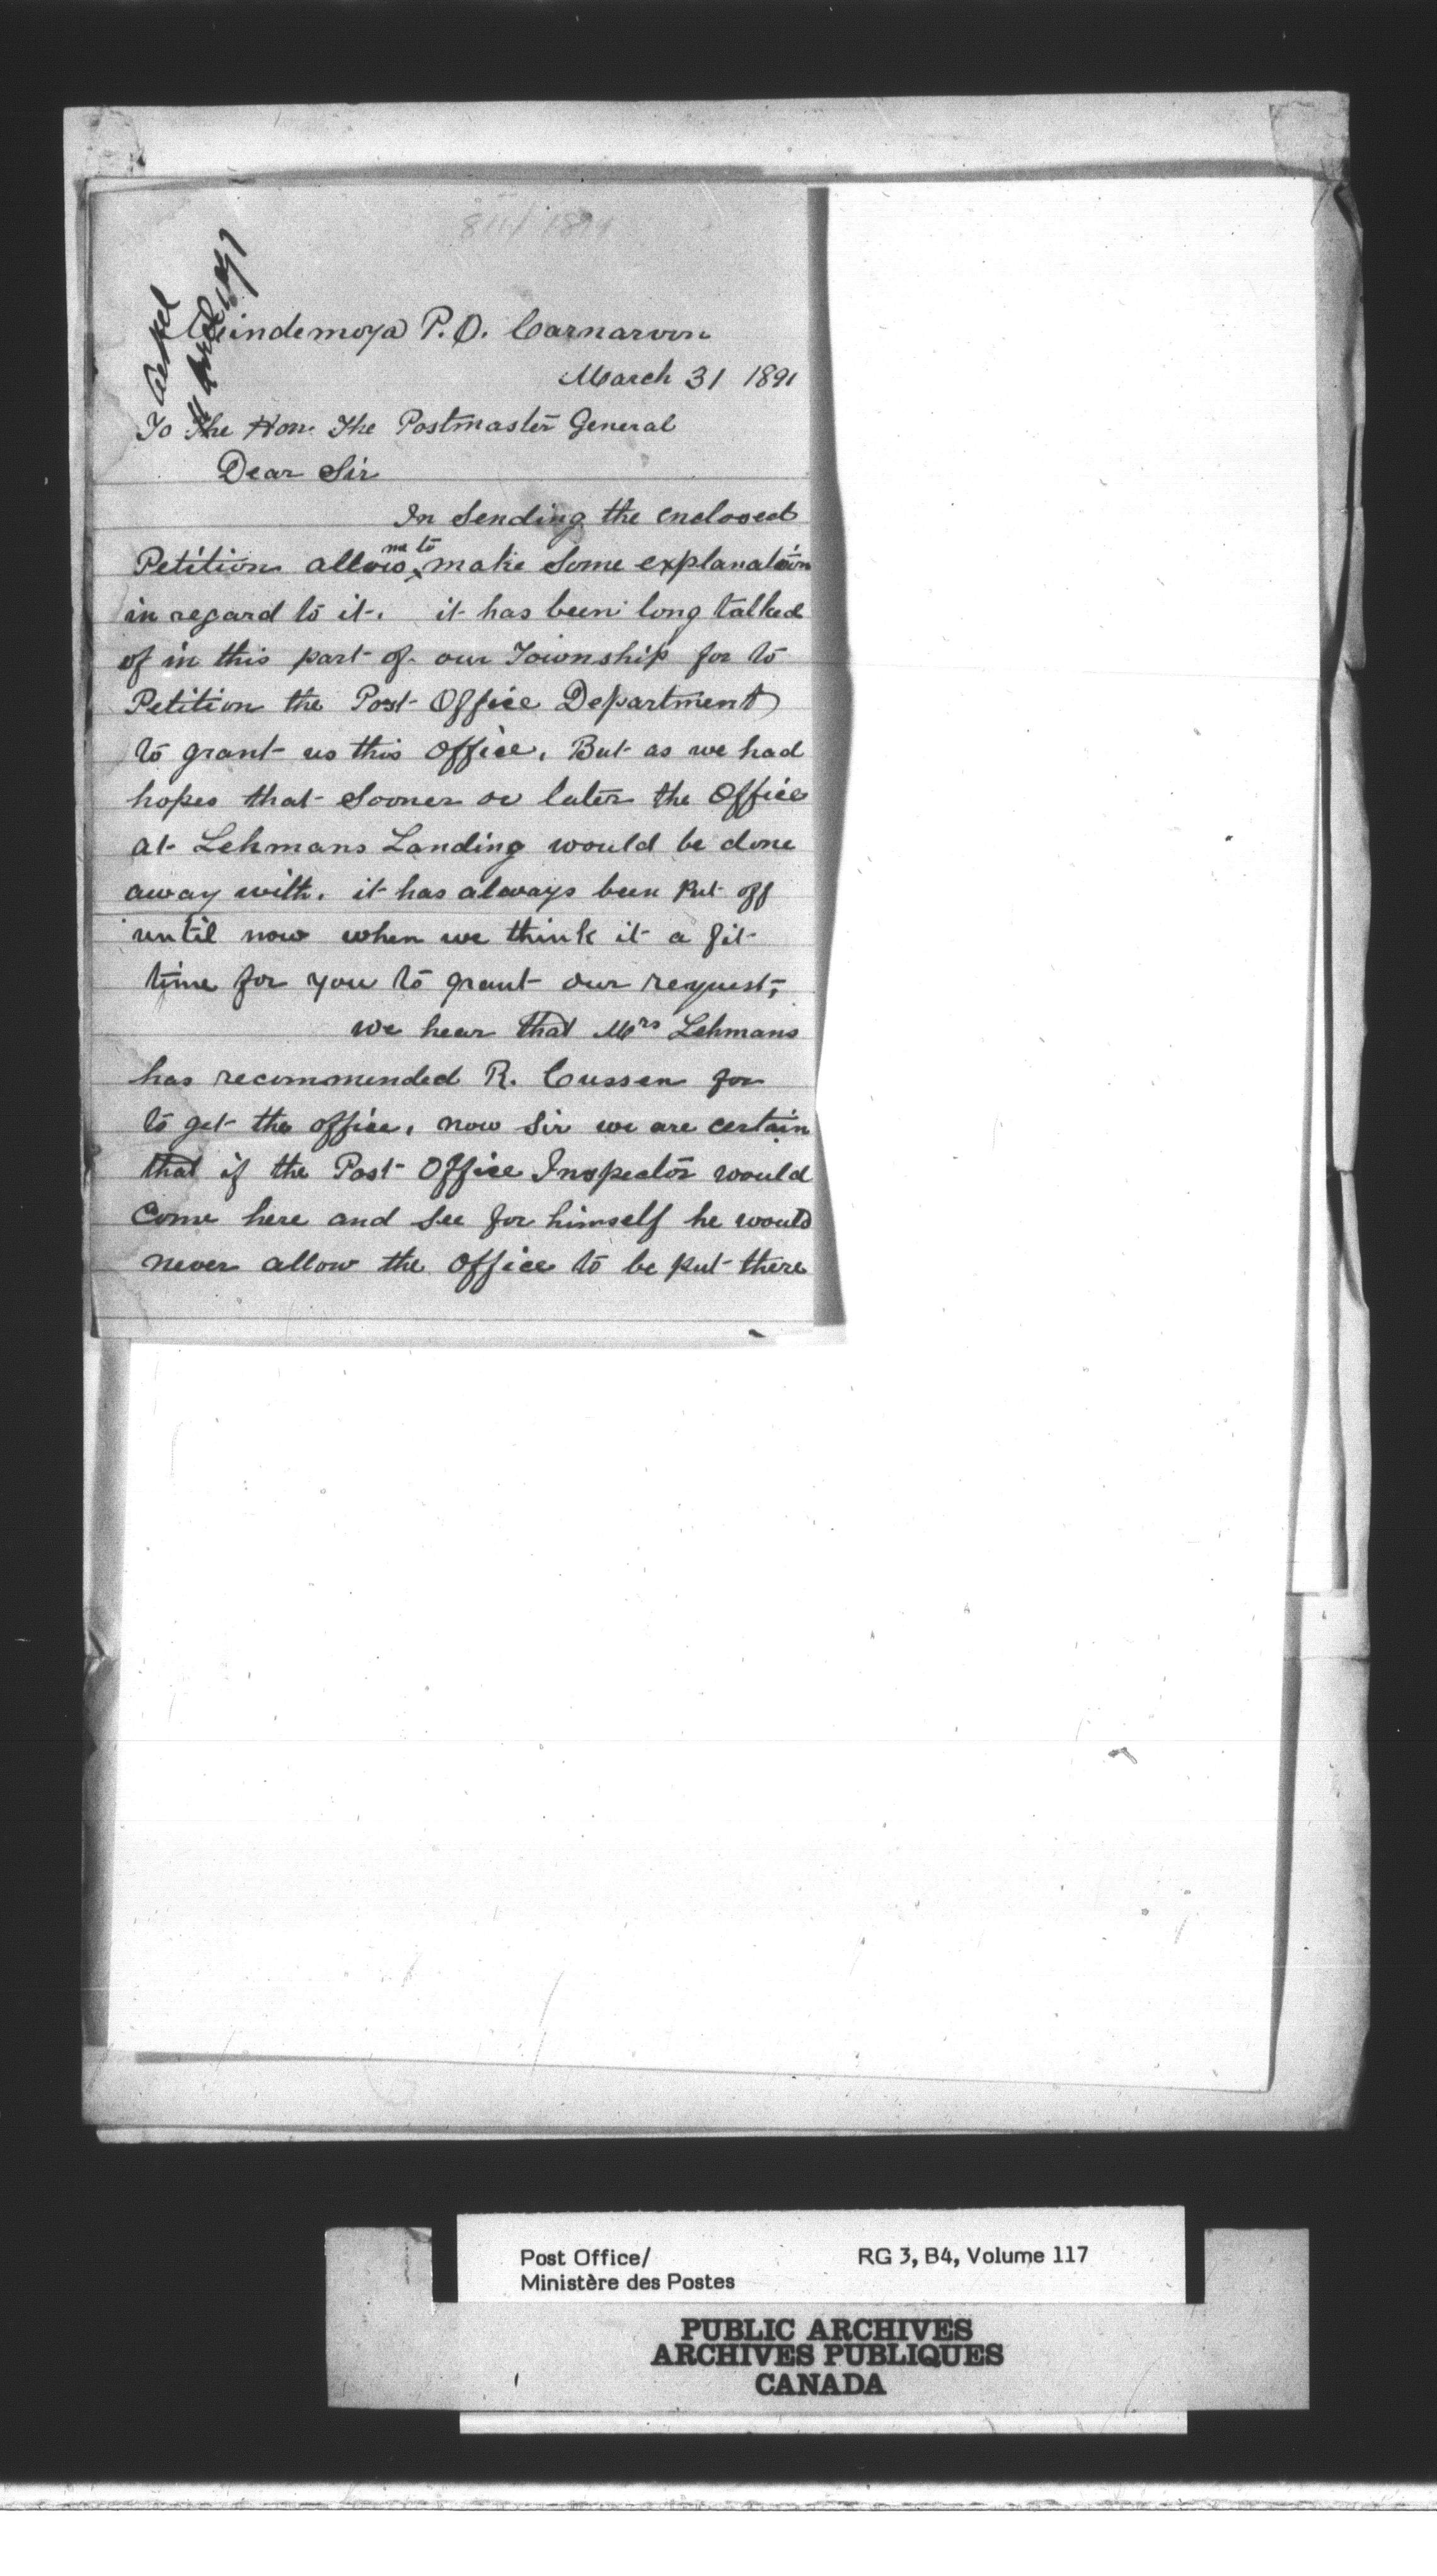 Mindemoya P.O. Carnarvon
March 31 1891
To The Hon. The Postmaster General
Dear Sir
In Sending the enclosed
Petition allow me to make Some explanation
in regard to it. it has been long talked
of in this part of our Township for to
Petition the Post Office Department
to grant us this Office. But as we had
hopes that Sooner or later the Office
at Lehmans Landing would be done
away with. it has always been Put off
until now when we think it a fit
time for you to grant our request,
we hear that Mrs Lehmans
has recommended R. Cussen for
to get the office. now Sir we are certain
that if the Post Office Inspector would
Come here and See for himself he would
never allow the Office to be put there
Post Office/
Ministère des Postes
RG 3, B4, Volume 117
PUBLIC ARCHIVES
ARCHIVES PUBLIQUES
CANADA